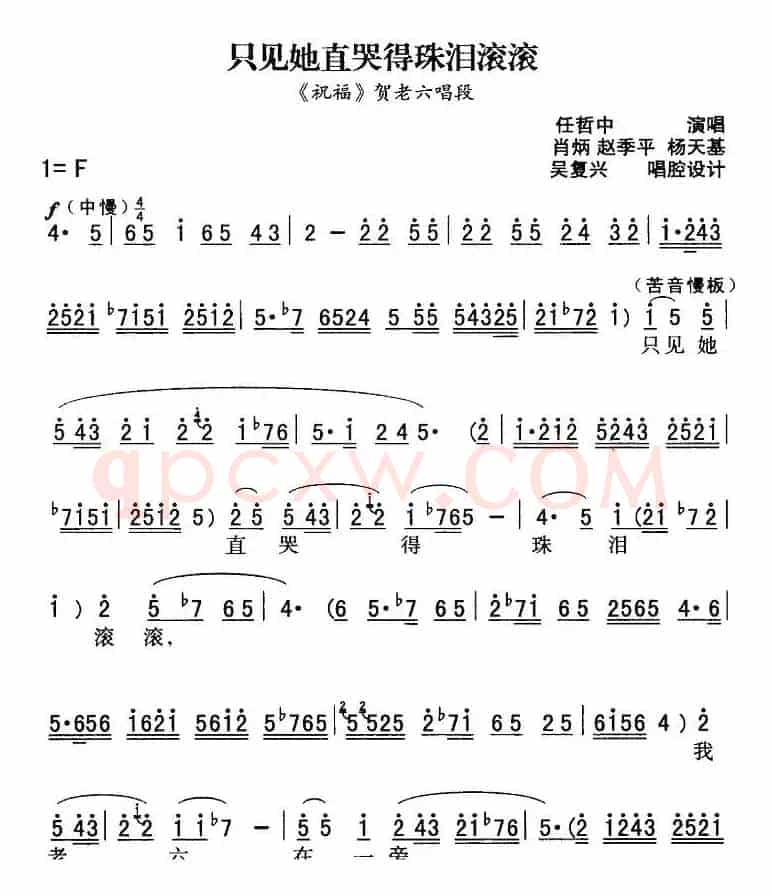 只见她直哭得珠泪滚滚
《祝福》贺老六唱段
任哲中 演唱
肖炳 赵季平 杨天基
1= F 吴复兴 唱腔设计
f (中慢) 4/4
4· 5 | 65 i 65 43 | 2 - 22 55 | 22 55 24 32 | i·243
(苦音慢板)
252i b7i5i 25i2 | 5·b7 6524 5 55 54325 | 2ib72 i) i 5 5 |
只见 她
5 43 2 i 2 2 ib76 | 5·i 2 4 5· (2 | i·2i2 5243 252i
qpcxw.COM
b7i5i | 25i2 5) 2 5 5 43 | 2 2 ib765 - | 4· 5 i (2i b7 2
直 哭 得 珠 泪
i ) 2 5 b7 65 | 4· (6 5·b7 65 | 2b7i 65 2565 4·6
滚 滚,
5·656 i62i 56i2 5b765 | 5525 2b7i 65 25 | 6i56 4 ) 2
我
5 43 | 2 2 ib7 - | 5 5 i 2 43 2ib76 | 5·(2 i243 252i
老 六 在 一 旁